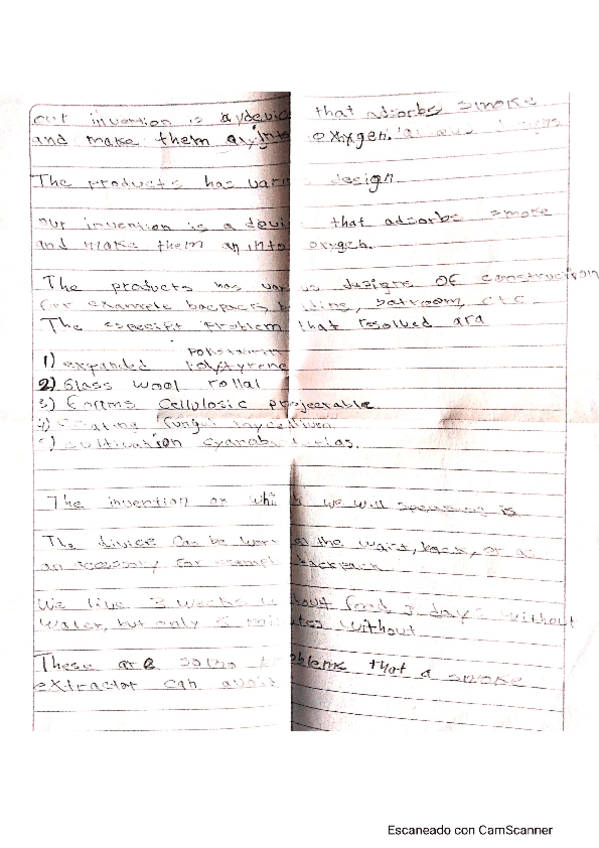 our invention is a device that adsorbs smoke
and make them an into oxygen.
The products has vari design
our invention is a devi that adsorbs smoke
and make them an into oxygen.
The products has various designs of construction
for example bacpacs, b ding, batroom, etc.
The especifi Problem that resolved ara
1) expanded polystyrene
2) Glass wool rollal
3) foams Cellulosic projectable
fungi mycelium
cultivation cyanobacterias.
The invention on whi we will speaking is
The divice can be wor the waist, back, or as
an for exampl backpack
We live 3 weeks without food 3 days without
water, but only minutes without
These are some problems that a smoke
extractor can avoid
Escaneado con CamScanner